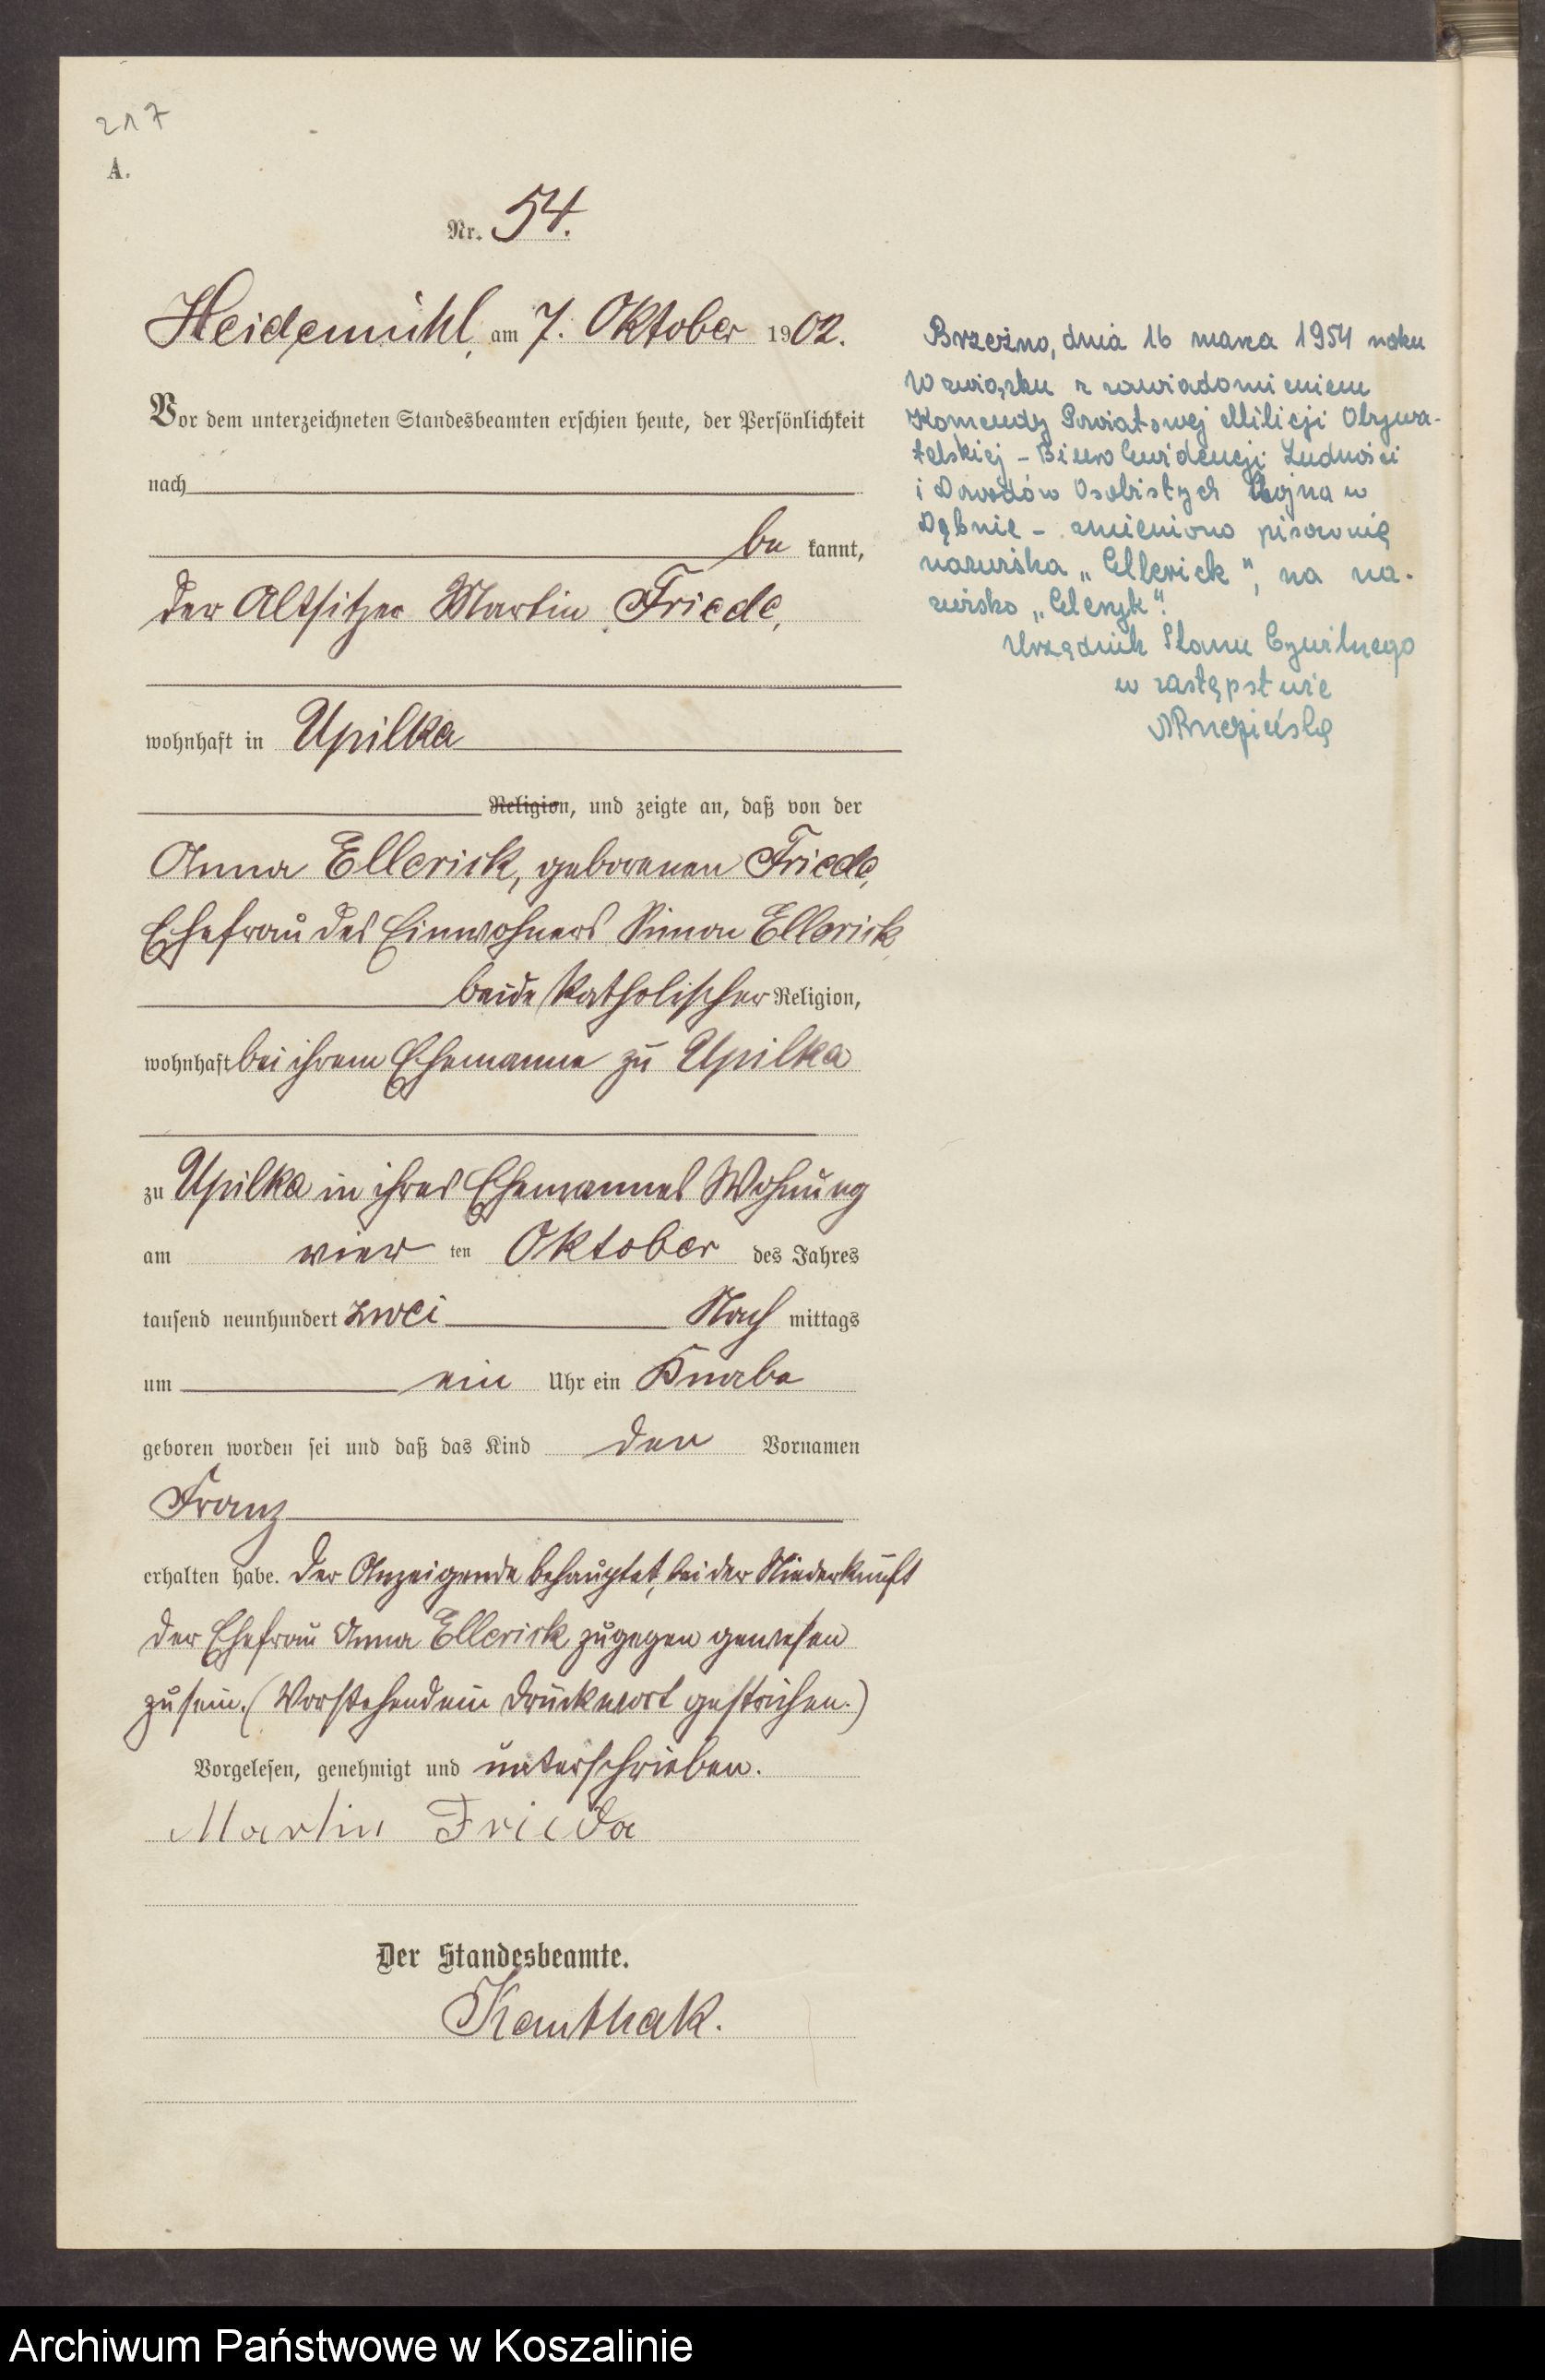 217
A.
Nr. 54.
Heidemühl, am 7. Oktober 1902.
Vor dem unterzeichneten Standesbeamten erschien heute, der Persönlichkeit
nach
be kannt,
der Altsitzer Martin Friede,
wohnhaft in Upilka
Religion, und zeigte an, daß von der
Anna Ellerick, geborenen Friede,
Ehefrau des Einwohners Simon Ellerick,
beide katholischer Religion,
wohnhaft bei ihrem Ehemanne zu Upilka
zu Upilka in ihres Ehemannes Wohnung
am vier ten Oktober des Jahres
tausend neunhundert zwei Nach mittags
um ein Uhr ein Knabe
geboren worden sei und daß das Kind den Vornamen
Franz
erhalten habe. Der Anzeigende behauptet, bei der Niederkunft
der Ehefrau Anna Ellerick zugegen gewesen
zu sein. (Vorstehend ein Druckwort gestrichen.)
Vorgelesen, genehmigt und unterschrieben.
Martin Frieda
Der Standesbeamte.
Kanthak.
Brzeźno, dnia 16 marca 1954 roku
W związku z zawiadomieniem
Komendy Powiatowej Milicji Obywa-
telskiej - Biuro Ewidencji Ludności
i Dowodów Osobistych Chojna w
Dębnie - zmieniono pisownię
nazwiska „Ellerick", na na-
zwisko „Eleryk".
Urzędnik Stanu Cywilnego
w zastępstwie
Archiwum Państwowe w Koszalinie